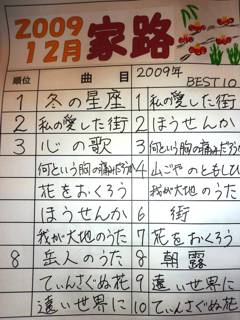 2009
12月 家路
順位 曲目 2009年 BEST10
1 冬の星座 1 私の愛した街
2 私の愛した街 2 ほうせんか
3 心の歌 3 何という胸の痛みだろうか
何という胸の痛みだろうか 4 山ごやのともしび
花をおくろう 我が大地のうた
ほうせんか 6 街
我が大地のうた 7 花をおくろう
8 岳人のうた 8 朝露
てぃんさぐぬ花 9 遠い世界に
遠い世界に 10 てぃんさぐぬ花